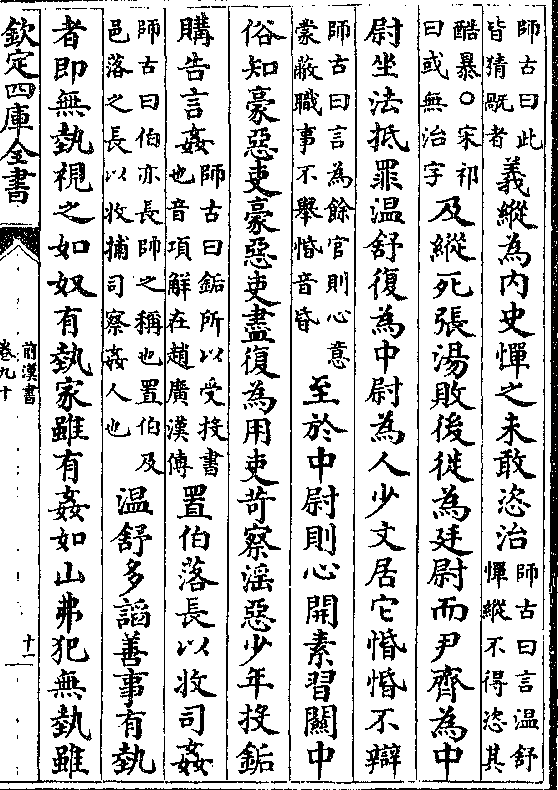 師古曰此
皆猜厩者
義縱為内史憚之未敢恣治
師古曰言温舒
憚縱不得恣其
酷暴○宋祁
曰或無治字
及縱死張湯敗後徙為廷尉而尹齊為中
尉坐法抵罪温舒復為中尉為人少文居它惛惛不辯
師古曰言為餘官則心意
蒙蔽職事不舉惛音昏
至於中尉則心開素習關中
俗知豪惡吏豪惡吏盡復為用吏苛察淫惡少年投缿
購告言姦
師古曰缿所以受投書
也音項解在趙廣漢傳
置伯落長以收司姦
師古曰伯亦長帥之稱也置伯及
邑落之長以收捕司察姦人也
温舒多謟善事有埶
者即無埶視之如奴有埶家雖有姦如山弗犯無埶雖
欽定四庫全書
前漢書
卷九十
十一